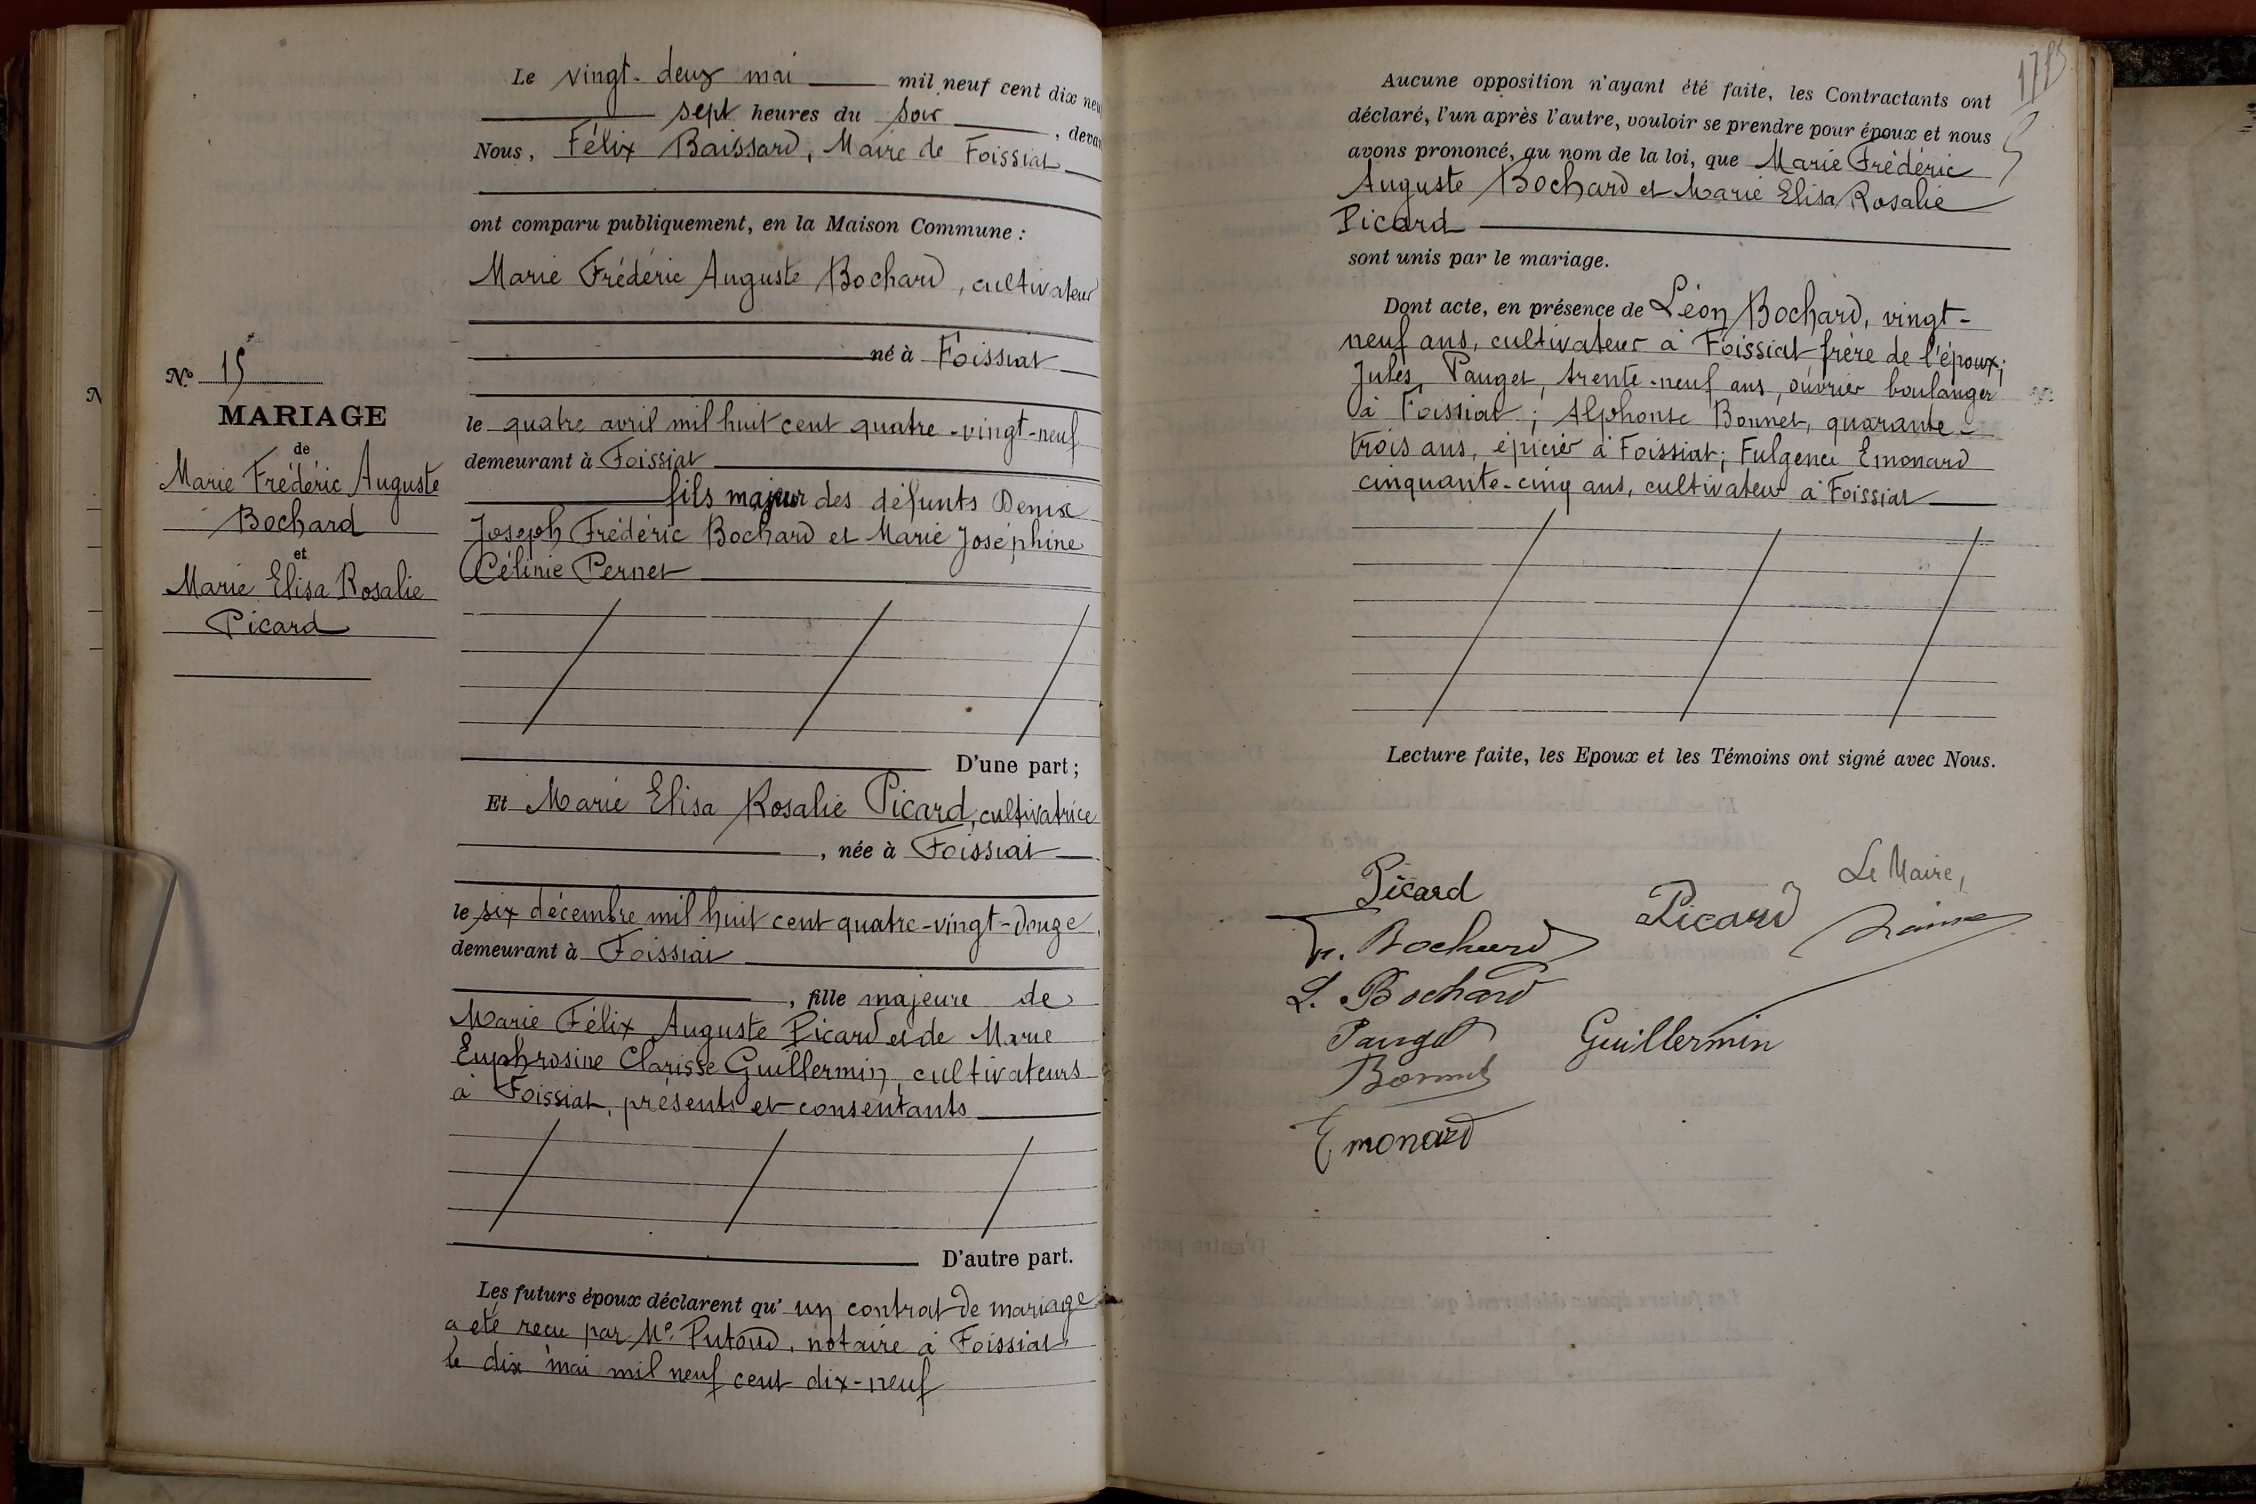 N° 15
MARIAGE
de
Marie Frédéric Auguste
Bochard
et
Marie Elisa Rosalie
Picard
Le vingt-deux mai mil neuf cent dix neu
sept heures du soir, devan
Nous, Félix Baissard, Maire de Foissiat
ont comparu publiquement, en la Maison Commune :
Marie Frédéric Auguste Bochard, cultivateur
né à Foissiat
le quatre avril mil huit cent quatre-vingt-neuf
demeurant à Foissiat
fils majeur des défunts Denis
Joseph Frédéric Bochard et Marie Joséphine
Célinie Pernet
D'une part ;
Et Marie Elisa Rosalie Picard, cultivatrice
, née à Foissiat
le six décembre mil huit cent quatre-vingt-douze,
demeurant à Foissiat
, fille majeure de
Marie Félix Auguste Picard et de Marie
Euphrosine Clarisse Guillermin, cultivateurs
à Foissiat, présents et consentants
D'autre part.
Les futurs époux déclarent qu'un contrat de mariage
a été reçu par Me. Putoud, notaire à Foissiat
le dix mai mil neuf cent dix-neuf
Aucune opposition n'ayant été faite, les Contractants ont
déclaré, l'un après l'autre, vouloir se prendre pour époux et nous
avons prononcé, au nom de la loi, que Marie Frédéric
Auguste Bochard et Marie Elisa Rosalie
Picard
sont unis par le mariage.
Dont acte, en présence de Léon Bochard, vingt-
neuf ans, cultivateur à Foissiat frère de l'époux;
Jules Pauget, trente-neuf ans, ouvrier boulanger
à Foissiat ; Alphonse Bonnet, quarante-
trois ans, épicier à Foissiat; Fulgence Emonard
cinquante-cinq ans, cultivateur à Foissiat
Lecture faite, les Epoux et les Témoins ont signé avec Nous.
Picard
Bochard
L. Bochard
Pauget
Bonnet
Emonard
Picard
Guillermin
Le Maire,